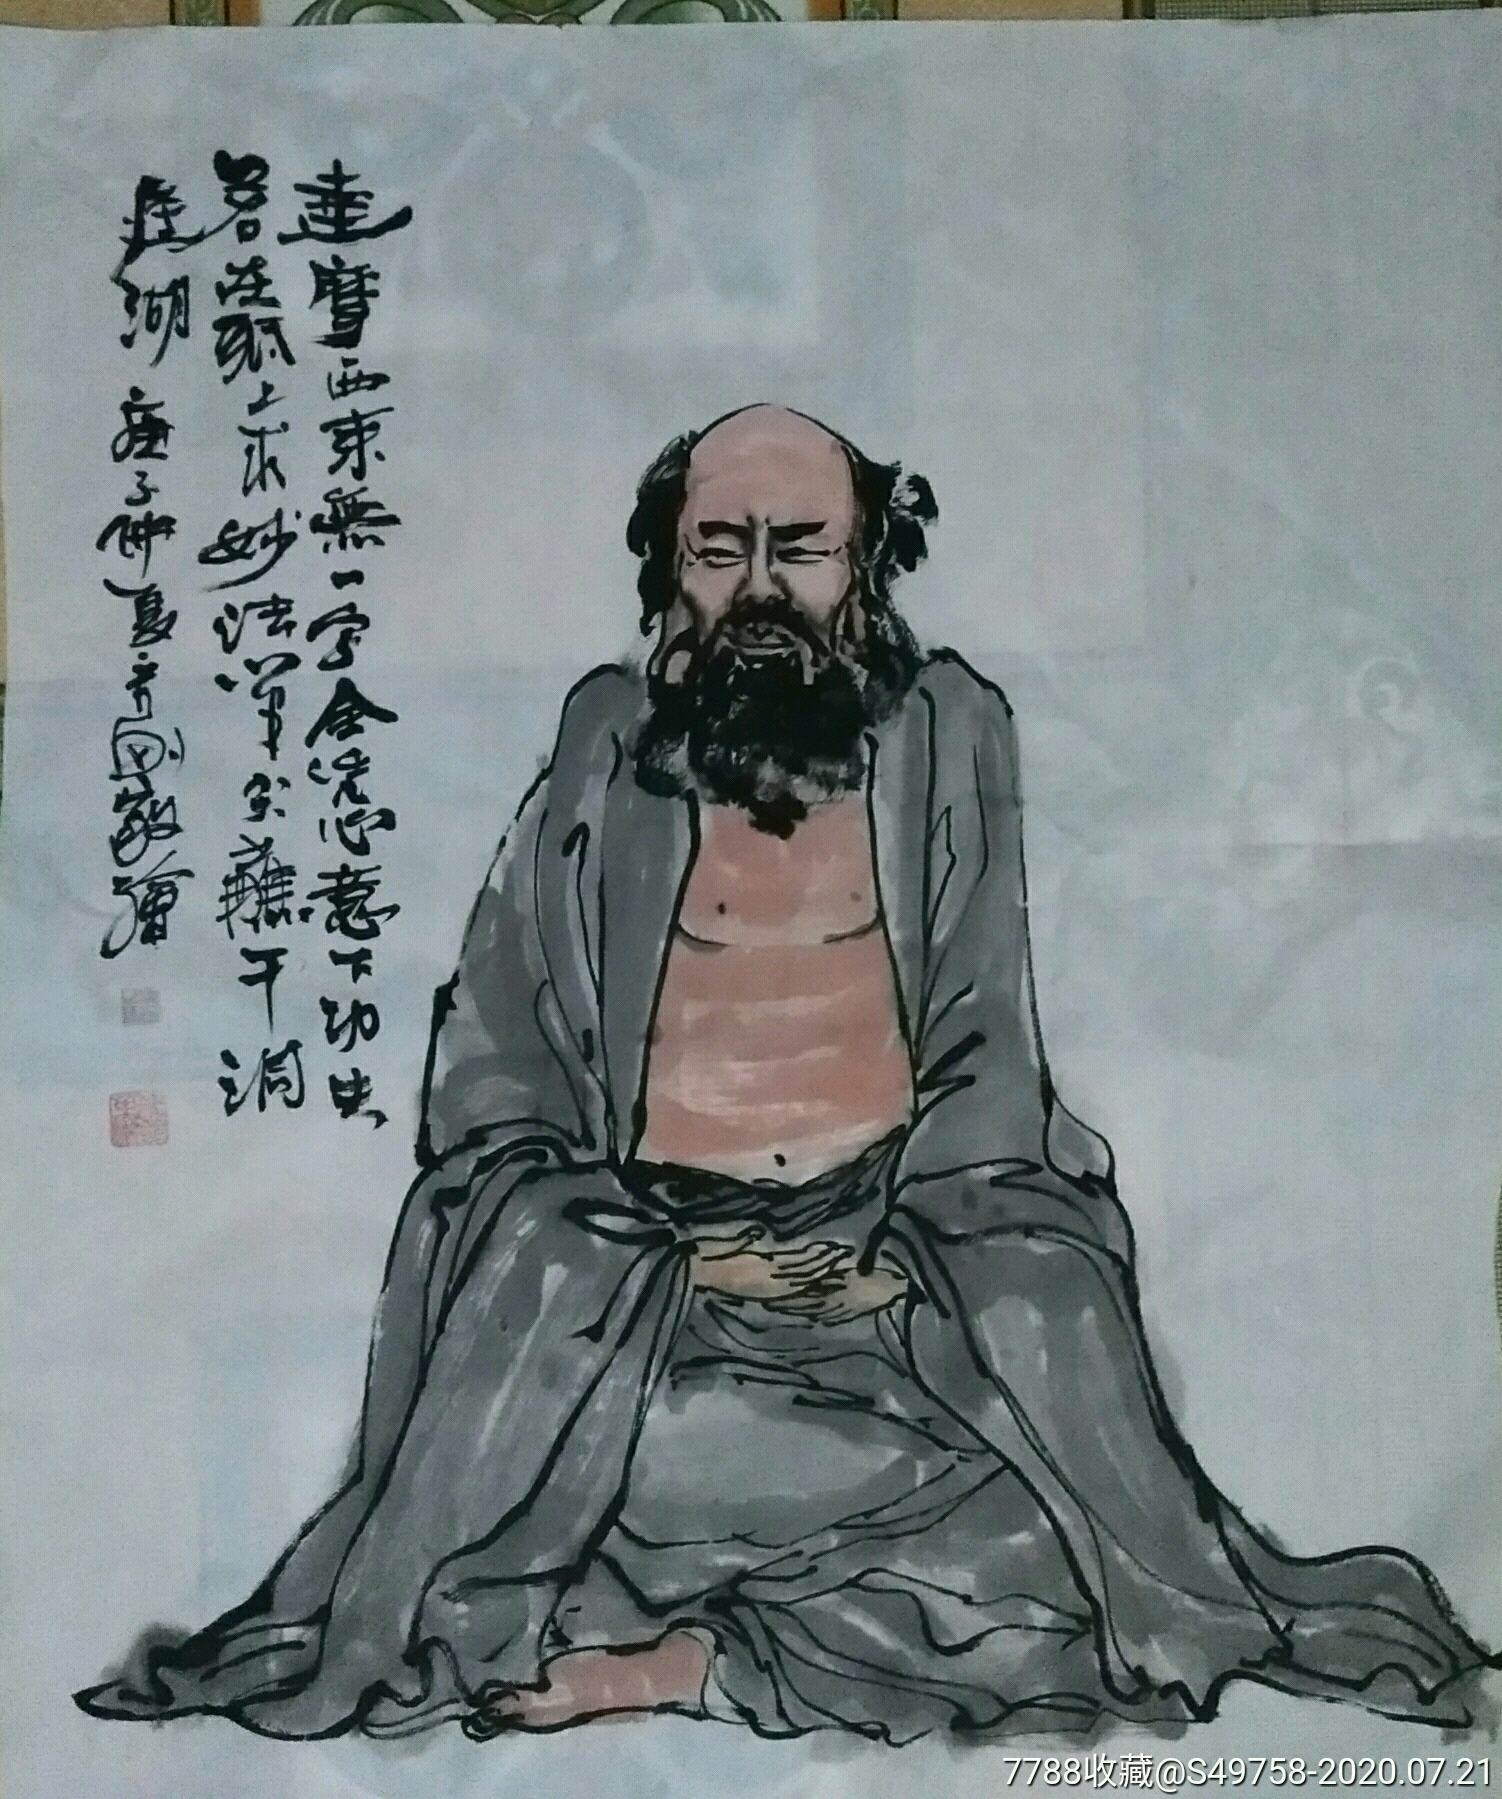 達摩西來無一字全凭心意下功夫
若在紙上求妙法筆尖蘸干洞
庭湖 庚子仲夏 敬繪
7788收藏@S49758-2020.07.21